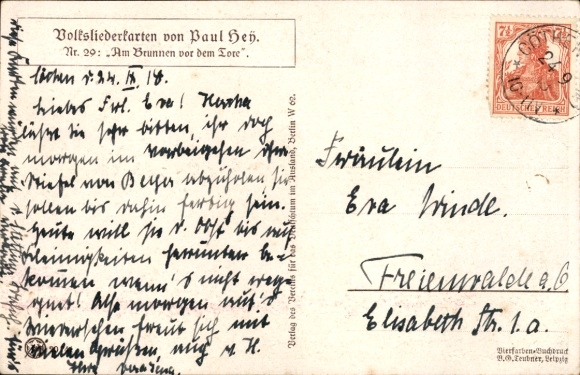 Volksliederkarten von Paul Hey.
Nr. 29: „Am Brunnen vor dem Tore".
Cöthen d. 24. IX. 18.
Liebes Frl. Eva! Hertha
läßt Sie sehr bitten, ihr doch
morgen im vorbeigehen ihre
Stiefel von abzuholen sie
sollen bis dahin fertig sein.
Heute will sie d. Obst bis auf
Kleinigkeiten herunter be-
kommen wenn's nicht reg-
net! Also morgen auf's
Wiedersehen freut sich mit
vielen Grüßen, auch v. H.
Ihre
Fräulein
Eva Winde.
Freienwalde a. O
Elisabeth Str. 1.a.
7½
DEUTSCHES REICH
24.9
Verlag des Vereins für das Deutschtum im Ausland, Berlin W 62.
Vierfarben-Buchdruck
B. G. Teubner, Leipzig